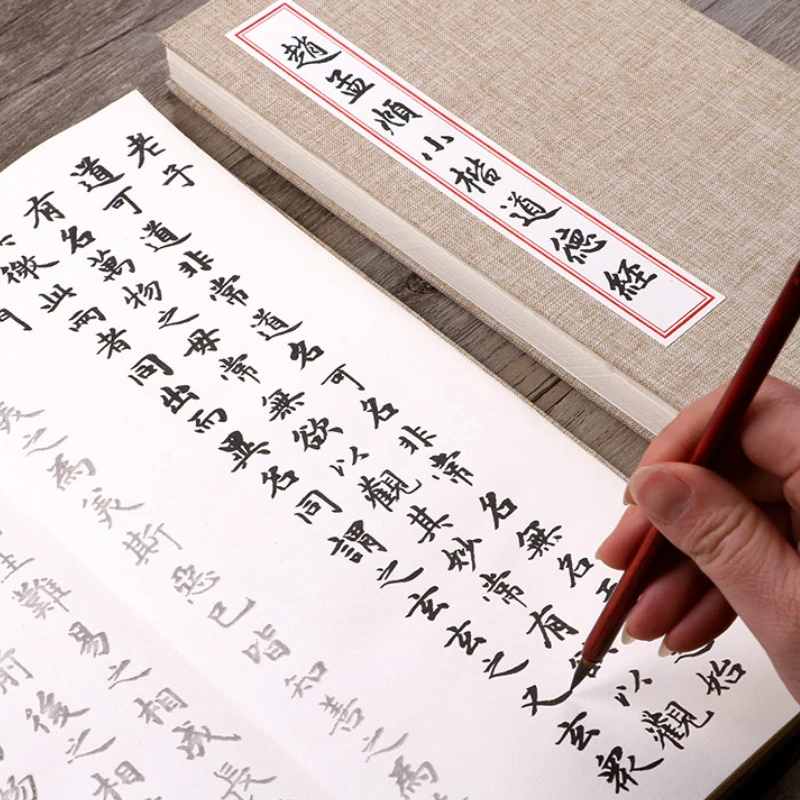 趙孟頫小楷道德経
老子
道可道非常道名可名非常名無名始
有名萬物之母常無欲以觀其妙常有欲以觀
徼此兩者同出而異名同謂之玄玄之又玄眾
門
美之為美斯惡已皆知善之為
生難易之相成長
前後之相
物